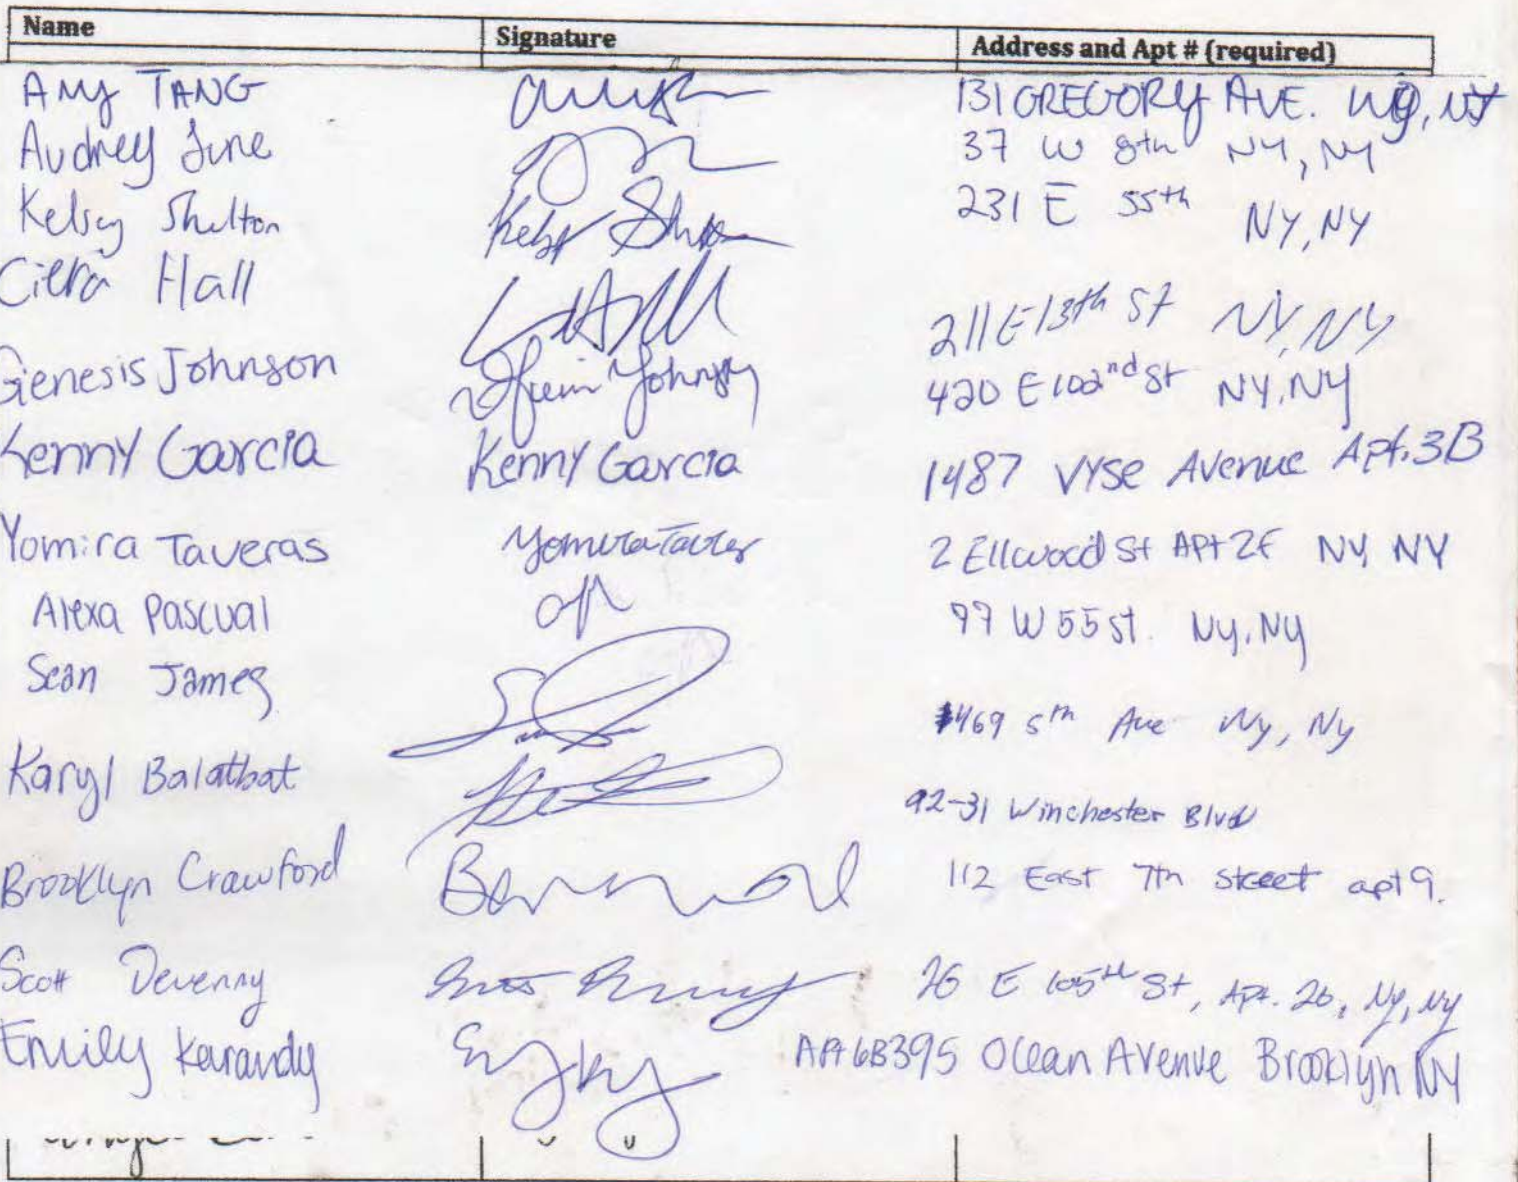 Name Signature Address and Apt # (required)
Amy TANG 131 GREGORY AVE. NJ
Audrey June 37 W 8th NY, NY
Kelsey Shelton Kelsy 231 E 55th NY, NY
Ciera Hall 211 E 13th St NY, NY
Genesis Johnson Johnson 420 E 102nd St NY, NY
Kenny Garcia Kenny Garcia 1487 VYSE Avenue Apt. 3B
Yomira Taveras Yomira Taveras 2 Ellwood St APt 2F NY NY
Alexa Pascual 97 W 55 st. Ny, Ny
Sean James 469 5th Ave Ny, Ny
Karyl Balatbat 92-31 Winchester Blvd
Brooklyn Crawford 112 East 7th street apt 9.
Scott Devenny 26 E 105th St, Apt. 2b, Ny, Ny
Emily Karandy APt 6B 395 Ocean Avenue Brooklyn NY